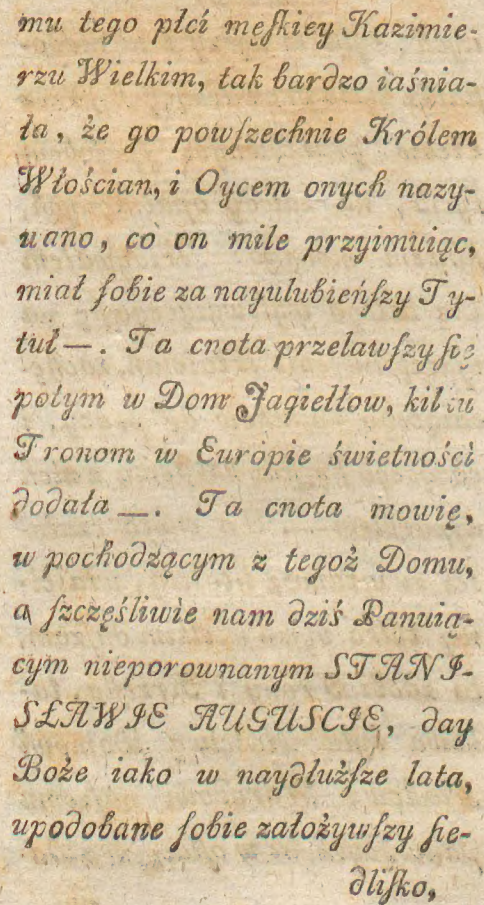 mu tego płci męſkiey Kazimie-
rzu Wielkim, tak bardzo iaśnia-
ła, że go powſzechnie Królem
Włościan, i Oycem onych nazy-
wano, co on mile przyimuiąc,
miał ſobie za nayulubieńſzy Ty-
tuł—. Ta cnota przelawſzy ſię
potym w Dom Jagiełłow, kilku
Tronom w Europie świetności
dodała —. Ta cnota mowię,
w pochodzącym z tegoż Domu,
a ſzczęśliwie nam dziś Panuią-
cym nieporownanym STANI-
SŁAWIE AUGUSCIE, day
Boże iako w naydłużſze lata,
upodobane ſobie założywſzy ſie-
dliſko,